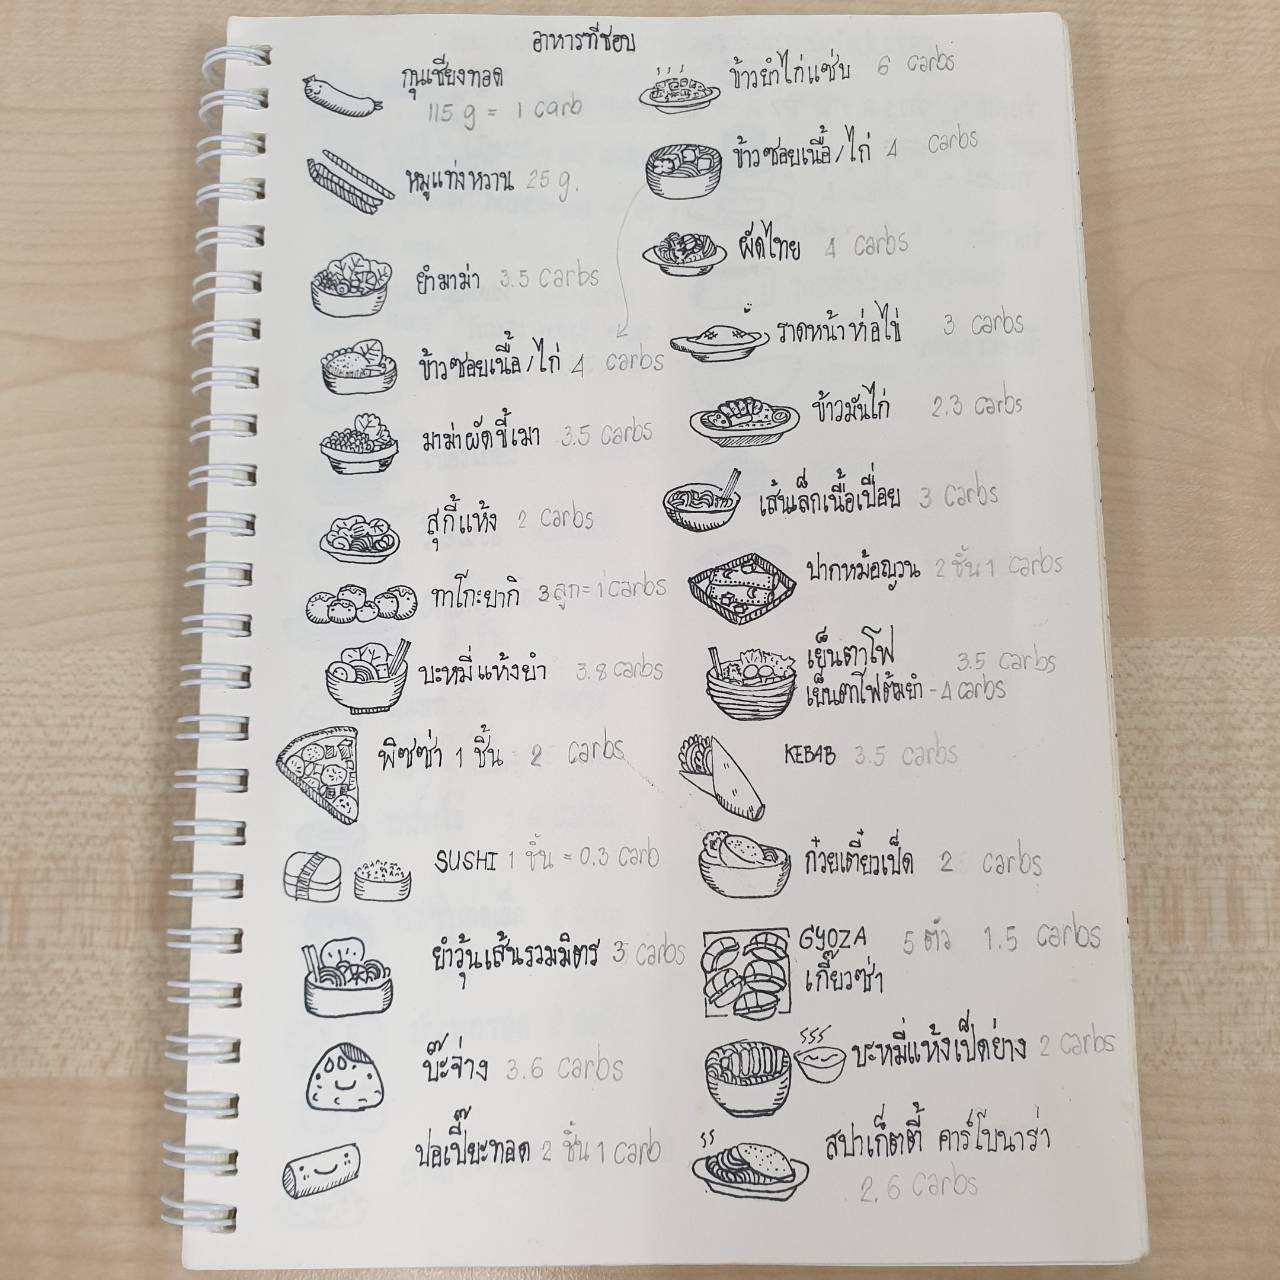 อาหารที่ชอบ
กุนเชียงทอด
115 g = 1 carb
หมูแท่งหวาน 25 g.
ยำมาม่า 3.5 carbs
ข้าวซอยเนื้อ/ไก่ 4 carbs
มาม่าผัดขี้เมา 3.5 carbs
สุกี้แห้ง 2 carbs
ทาโกะยากิ 3 ลูก = 1 carbs
บะหมี่แห้งยำ 3.8 carbs
พิซซ่า 1 ชิ้น = 2 carbs
SUSHI 1 ชิ้น = 0.3 carb
ยำวุ้นเส้นรวมมิตร 3 carbs
บ๊ะจ่าง 3.6 carbs
ปอเปี๊ยะทอด 2 ชิ้น 1 carb
ข้าวยำไก่แซ่บ 6 carbs
ข้าวซอยเนื้อ/ไก่ 4 carbs
ผัดไทย 4 carbs
ราดหน้าห่อไข่ 3 carbs
ข้าวมันไก่ 2.3 carbs
เส้นเล็กเนื้อเปื่อย 3 carbs
ปากหม้อญวน 2 ชิ้น 1 carbs
เย็นตาโฟ 3.5 carbs
เย็นตาโฟต้มยำ - 4 carbs
KEBAB 3.5 carbs
ก๋วยเตี๋ยวเป็ด 2 carbs
GYOZA 5 ตัว 1.5 carbs
เกี๊ยวซ่า
บะหมี่แห้งเป็ดย่าง 2 carbs
สปาเก็ตตี้ คาร์โบนาร่า
2.6 carbs